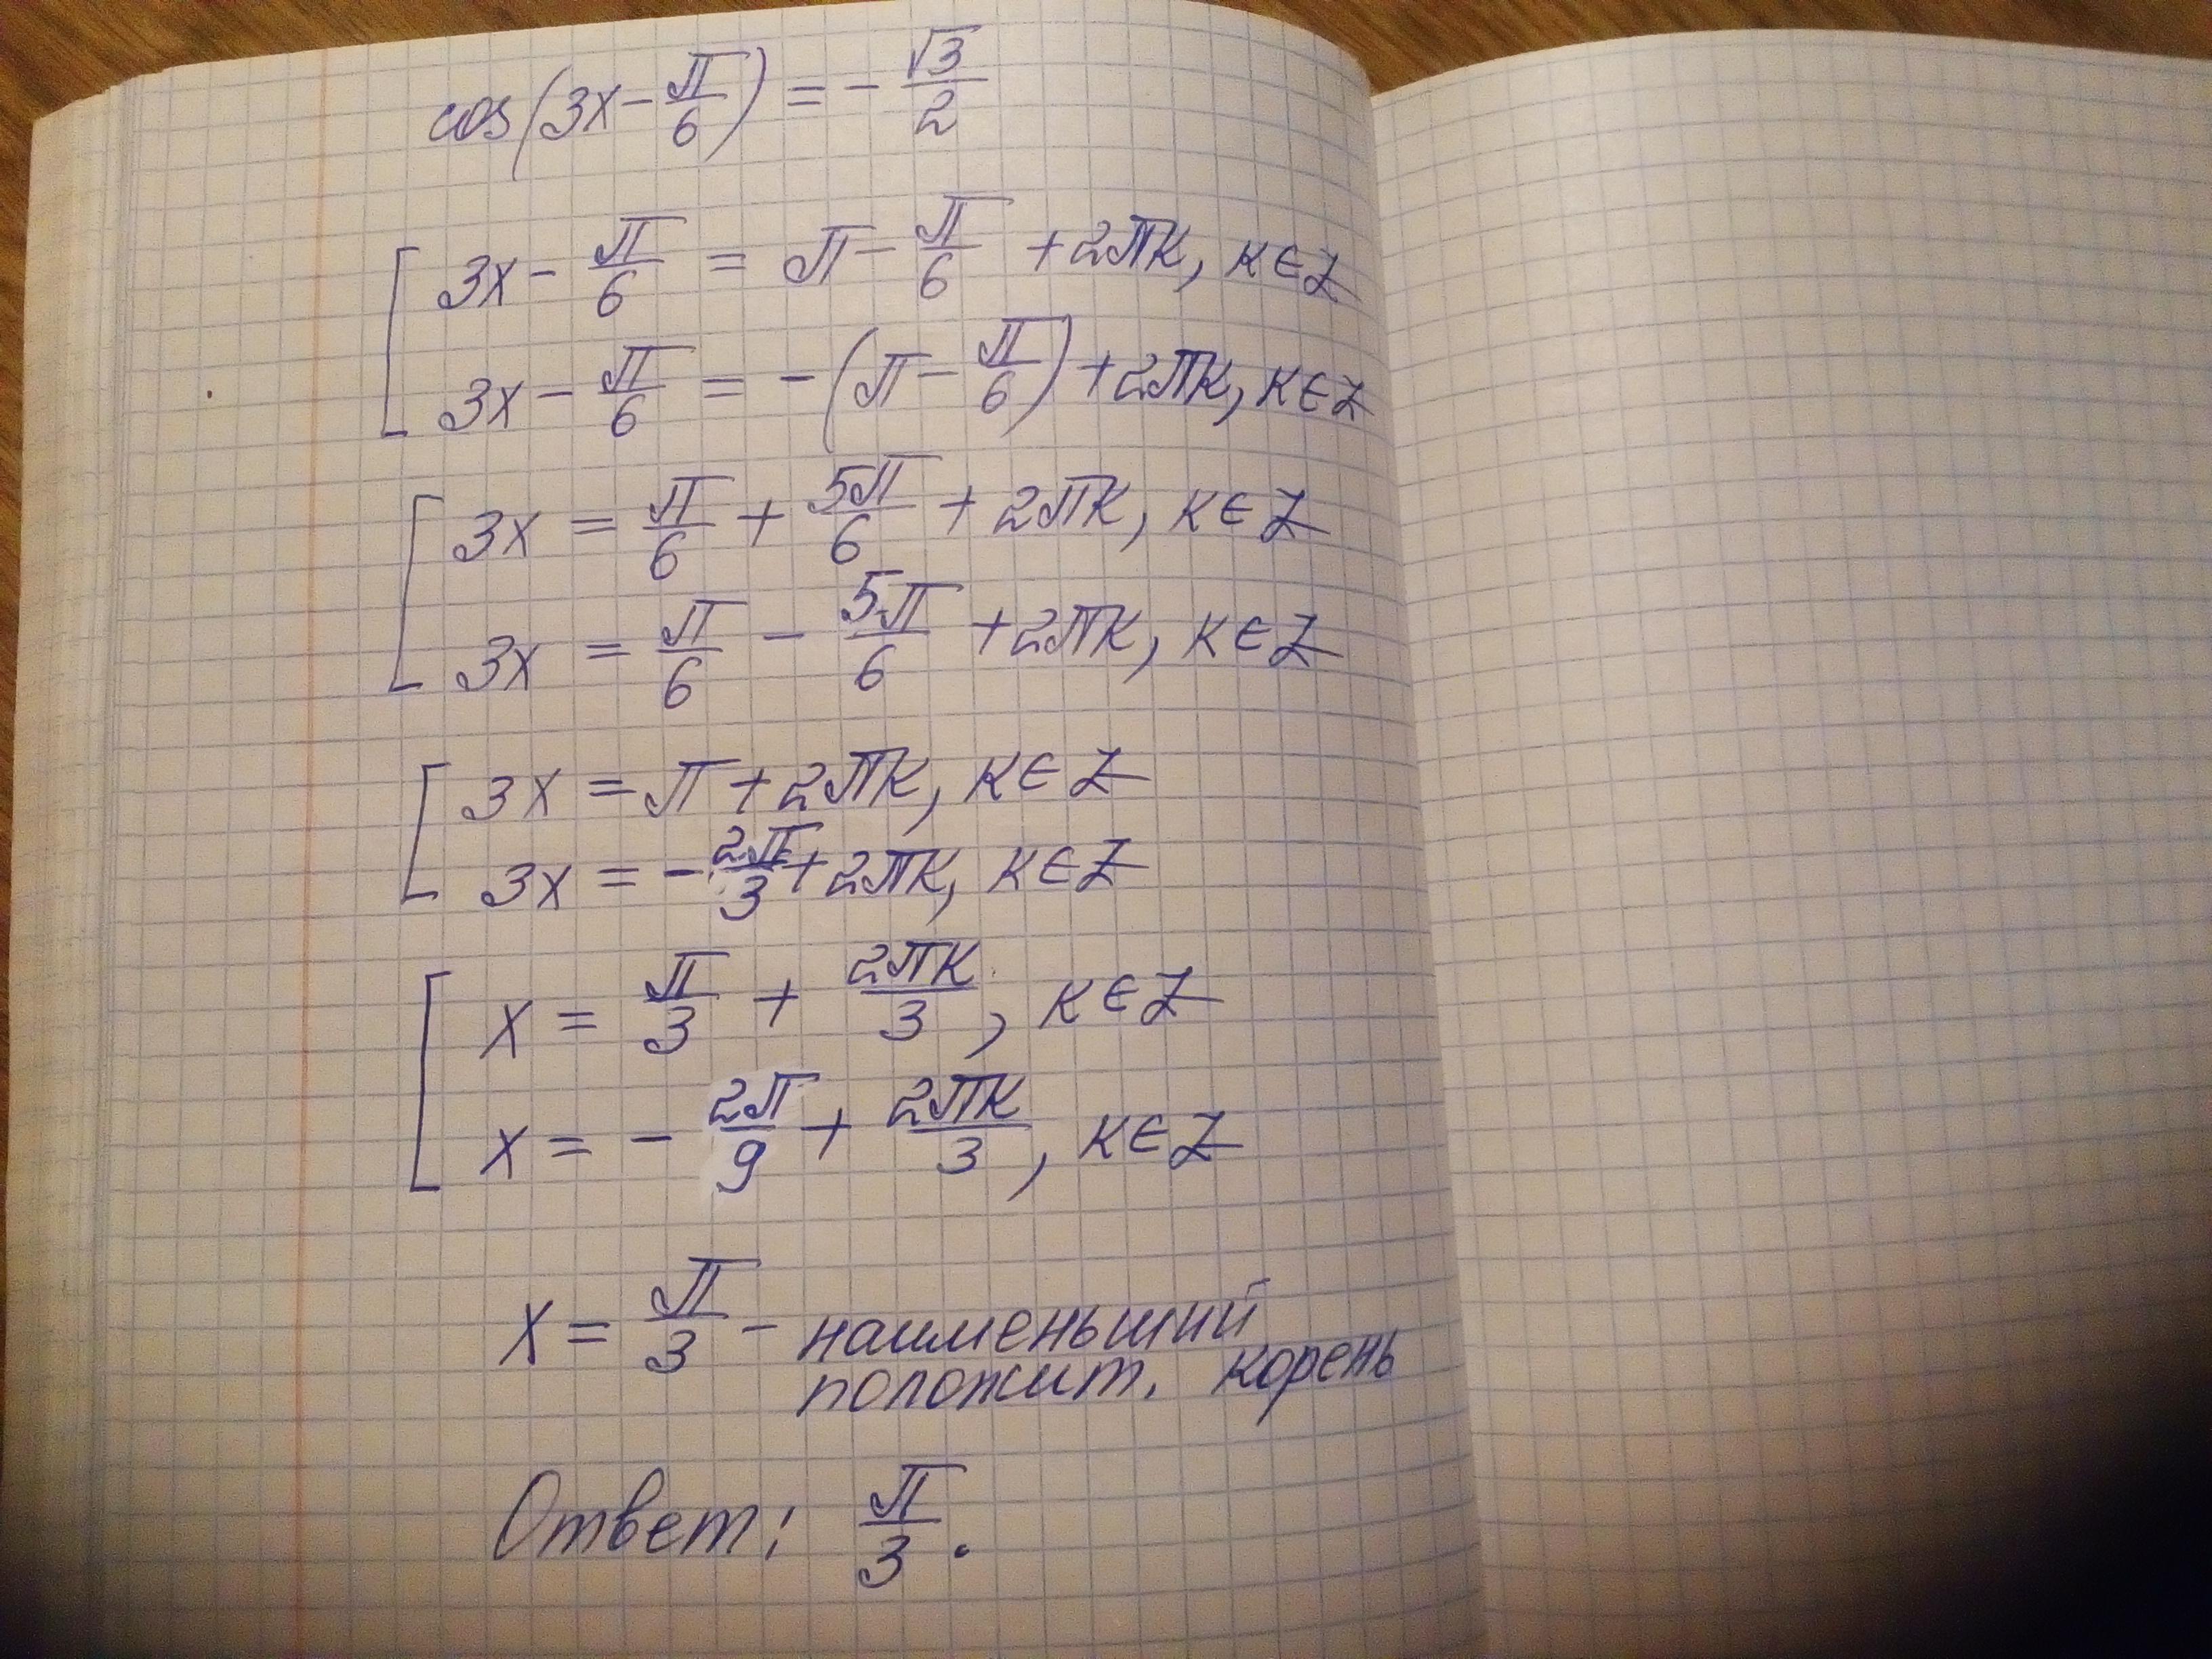 cos(3x - π/6) = - √3/2
[ 3x - π/6 = π - π/6 + 2πк, к ∈ Z
3x - π/6 = -(π - π/6) + 2πк, к ∈ Z
[ 3x = π/6 + 5π/6 + 2πк, к ∈ Z
3x = π/6 - 5π/6 + 2πк, к ∈ Z
[ 3x = π + 2πк, к ∈ Z
3x = - 2π/3 + 2πк, к ∈ Z
[ x = π/3 + 2πк/3, к ∈ Z
x = - 2π/9 + 2πк/3, к ∈ Z
x = π/3 - наименьший
положит. корень
Ответ: π/3.